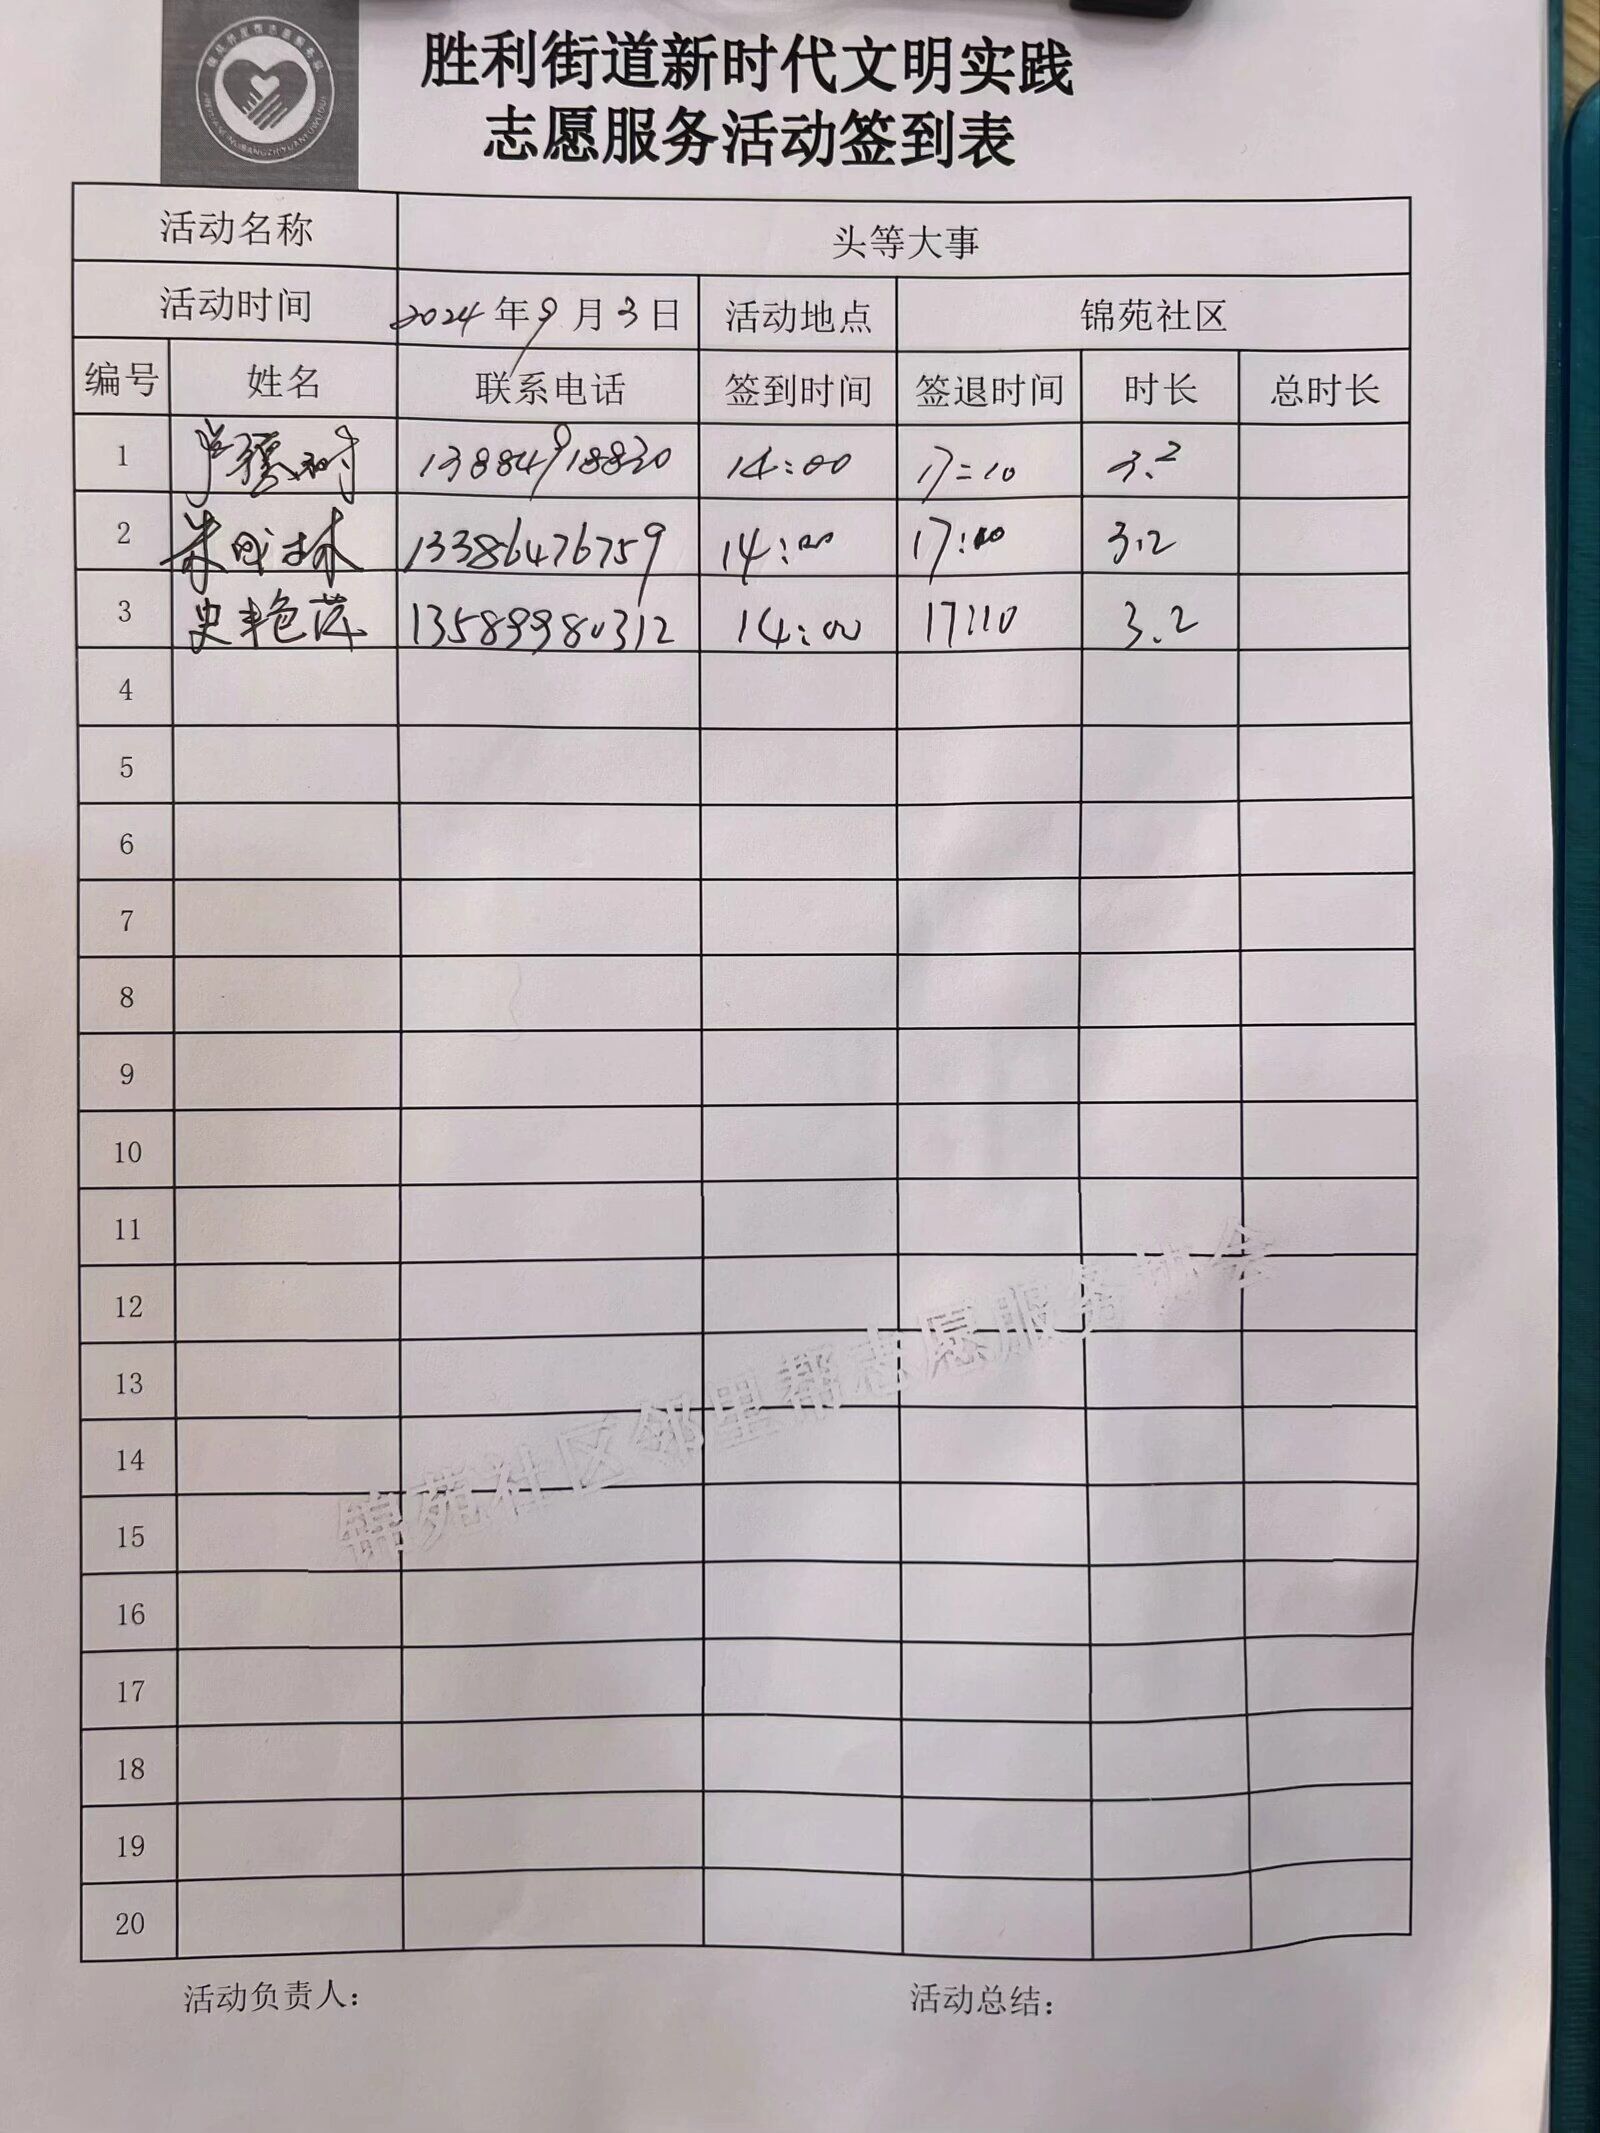 胜利街道新时代文明实践
志愿服务活动签到表
活动名称 头等大事
活动时间 2024年9月3日 活动地点 锦苑社区
编号 姓名 联系电话 签到时间 签退时间 时长 总时长
1 13884918830 14:00 17=10 3.2
2 13386476759 14:00 17:10 3.2
3 史艳萍 13589980312 14:00 17:10 3.2
4
5
6
7
8
9
10
11
12
13
14
15
16
17
18
19
20
锦苑社区邻里帮志愿服务协会
活动负责人： 活动总结：